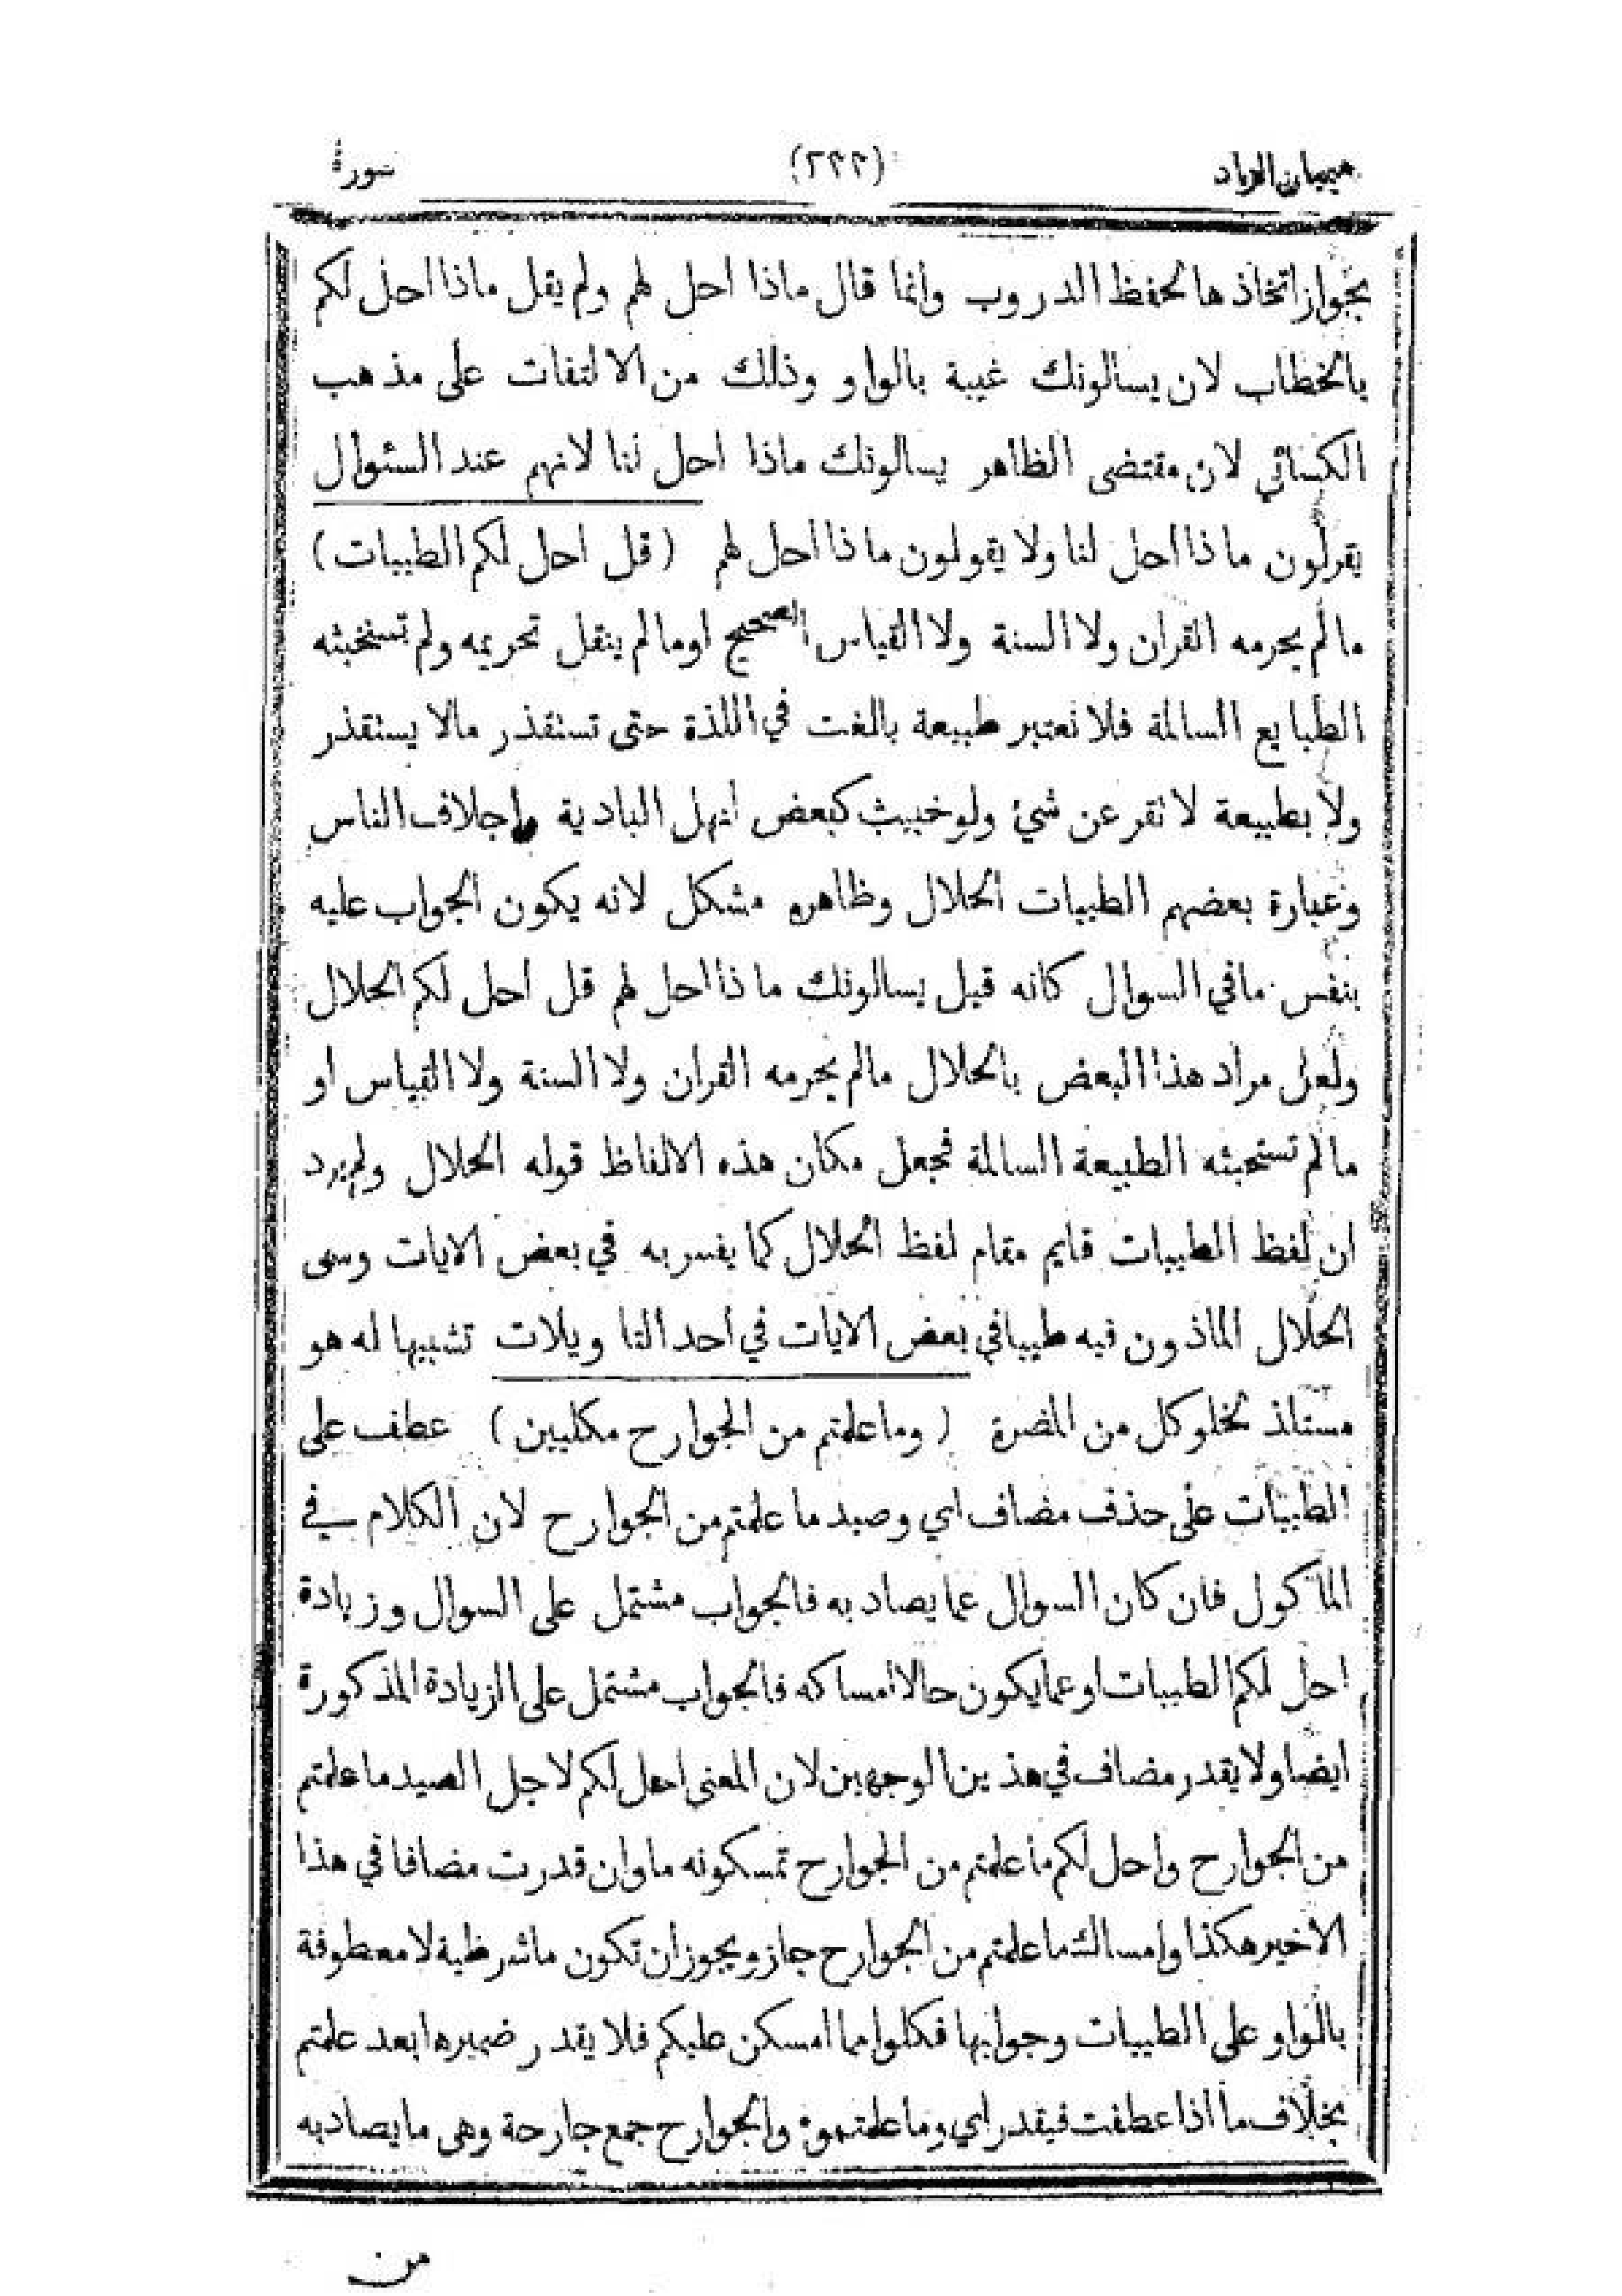 هيميان الزاد (٢٤٤) سورة
بجواز اتخاذها لحفظ الدروب وانما قال ماذا احل لهم ولم يقل ماذا احل لكم
بالخطاب لان يسالونك غيبة بالواو وذلك من الالتفات على مذهب
الكسائي لان مقتضى الظاهر يسالونك ماذا احل لنا لانهم عند السئوال
يقولون ماذا احل لنا ولا يقولون ماذا احل لهم (قل احل لكم الطيبات)
مالم يحرمه القران ولا السنة ولا القياس الصحيح اومالم ينقل تحريمه ولم تستخبثه
الطبايع السالمة فلا نعتبر طبيعة بالغت في اللذة حتى تستقذر مالا يستقذر
ولا بطبيعة لا تقر عن شيئ ولو خبيث كبعض اهل البادية واجلاف الناس
وعبارة بعضهم الطيبات الحلال وظاهره مشكل لانه يكون الجواب عليه
بنفس مافي السوال كانه قيل يسالونك ماذا احل لهم قل احل لكم الحلال
ولعل مراد هذا البعض بالحلال مالم يحرمه القران ولا السنة ولا القياس او
مالم تستخبثه الطبيعة السالمة فجعل مكان هذه الالفاظ قوله الحلال ولم يرد
ان لفظ الطيبات قايم مقام لفظ الحلال كما يفسر به في بعض الايات وسمى
الحلال الماذون فيه طيبا في بعض الايات في احد التاويلات تشبيها له هو
مستلذ لخلو كل من المضرة (وما علمتم من الجوارح مكلبين) عطف على
الطيبات على حذف مضاف اي وصيد ما علمتم من الجوارح لان الكلام في
الماكول فان كان السوال عما يصاد به فالجواب مشتمل على السوال وزيادة
احل لكم الطيبات او عما يكون حالا امساكه فالجواب مشتمل على الزيادة المذكورة
ايضا ولا يقدر مضاف في هذين الوجهين لان المعنى احل لكم لاجل الصيد ما علمتم
من الجوارح واحل لكم ما علمتم من الجوارح تمسكونه ما وان قدرت مضافا في هذا
الاخير هكذا وامساك ما علمتم من الجوارح جاز ويجوز ان تكون ما شرطية لا معطوفة
بالواو على الطيبات وجوابها فكلوا مما امسكن عليكم فلا يقدر ضميرها بعد علمتم
بخلاف ما اذا عطفت فيقدر اي وما علمتموه والجوارح جمع جارحة وهي ما يصاد به
من